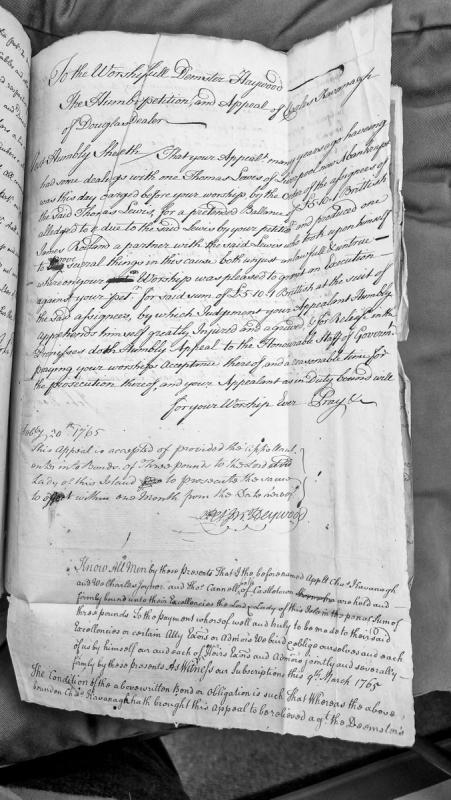 To the Worshifull Demster Haywood
The Humb: petition, and Appeal of Charles Kavanagh
of Douglas Dealer
Most Humbly Sheweth That your Appealt. many years ago haveing
had some dealings with one Thomas Lewes of Liverpool now a bankrupt
was this day Charged before your worship by the One of the asignees of
the Said Thomas Lewis, for a pretended Ballance of £5:10:4 Brittish
alledged to be due to the said Lewis by your petitir. and produced one
James Roland a partner with the said Lewis who took upon himself
to prove several things in this cause both unjust unlawfull & untrue
whereon your Worship was pleased to grant an Execution
against your pet. for said sum of £5:10:4 Brittish at the suit of
the said assignees, by which Judgement your Appealant Humbly
apprehends himself greatly Injured and agrieved, & for Relief in the
Premisses doth Humbly Appeal to the Honourable Staff of Governmt.
praying your worships Acceptance thereof, and a reasonable time for
the prosecution thereof, and your Appealant as in duty bound will
for your Worship Ever Pray &c
20th 1765
This Appeal is accepted of provided the Appellant
enter into Bonds of Three pound to the Lord &
Lady of this Island to prosecute the same
to effect within one Month from the Date hereof
Heywood
Know All Men by these Presents That I the before named Applt. Chas. Kavanagh
and We Charles Joyner and Thos. Cannell, of Castletown are held and
firmly bound unto their Excellencies the Lord & Lady of this Isle in the penal Sum of
three pounds To the Payment whereof well and truly to be made to their said
Excellencies or certain Atty Exōrs or Admōrs We bind & oblige ourselves and each
of us by himself our and each of Heirs Exōrs and Admōrs Jointly and severally
firmly by these presents As Witness our Subscriptions this 9th March 1765
The Condition of the abovewritten Bond or Obligation is such That Whereas the above
bounden Chas. Kavanagh hath brought this Appeal to be relieved agt. the Deemsters